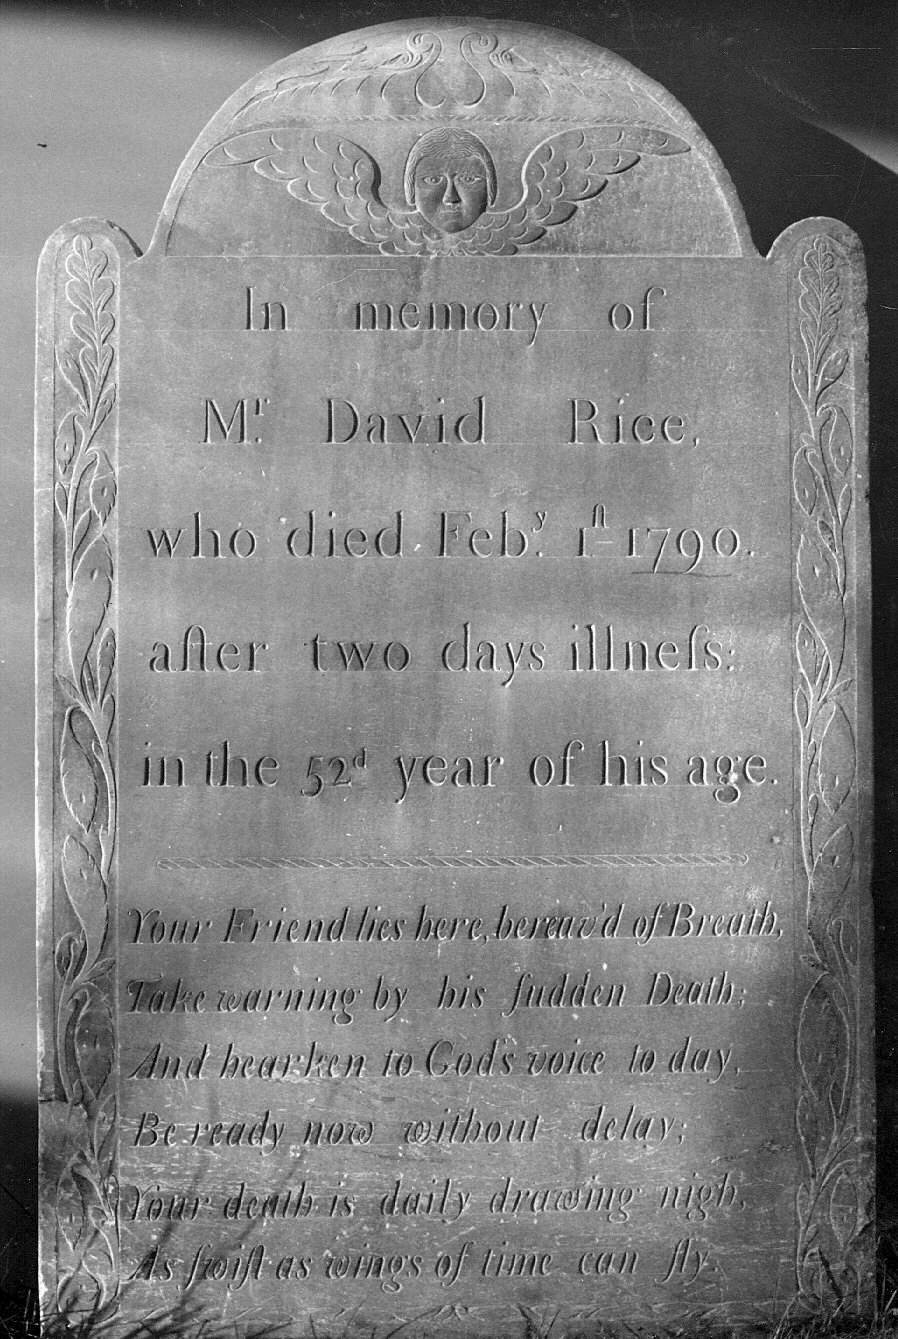 In memory of
Mʳ. David Rice,
who died Febʸ. 1ſᵗ 1790.
after two days illneſs:
in the 52ᵈ year of his age.
Your Friend lies here, bereav'd of Breath,
Take warning by his ſudden Death;
And hearken to God's voice to day,
Be ready now without delay;
Your death is daily drawing nigh,
As ſwift as wings of time can fly.